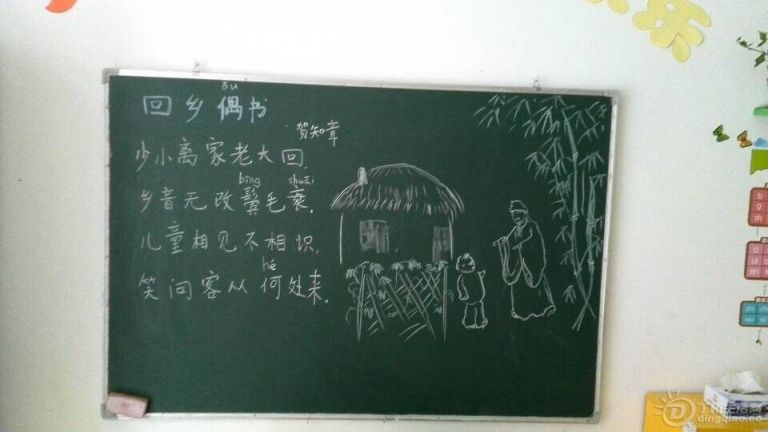 ǒu
回乡偶书
贺知章
少小离家老大回,
bìng shuāi
乡音无改鬓毛衰.
儿童相见不相识,
hé
笑问客从何处来.